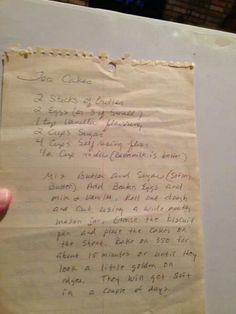 Tea Cakes
2 Sticks of Butter
2 Eggs (or 3 if Small)
1 tsp Vanilla flavoring
2 Cups Sugar
4 Cups Self rising flour
1/2 Cup milk (Buttermilk is better)
Mix Butter and Sugar (Soften
Butter) Add Beaten Eggs and
milk & Vanilla. Roll out dough
and Cut using a wide mouth
mason jar. Grease the biscuit
pan and place the cakes on
the sheet. Bake on 350 for
about 15 minutes or until they
look a little golden on
edges. They will get Soft
in a couple of days.